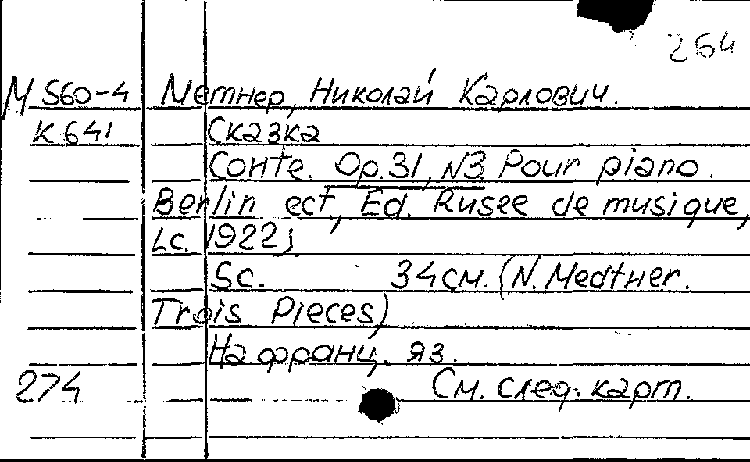 264
М 560-4 Метнер, Николай Карлович.
К 641 Сказка
Conte. Op.31, N3. Pour piano.
Berlin ect, Ed. Rusee de musique,
[c. 1922]
Sc. 34 см. (N. Medtner.
Trois Pieces)
На франц. яз.
274 См. след. карт.